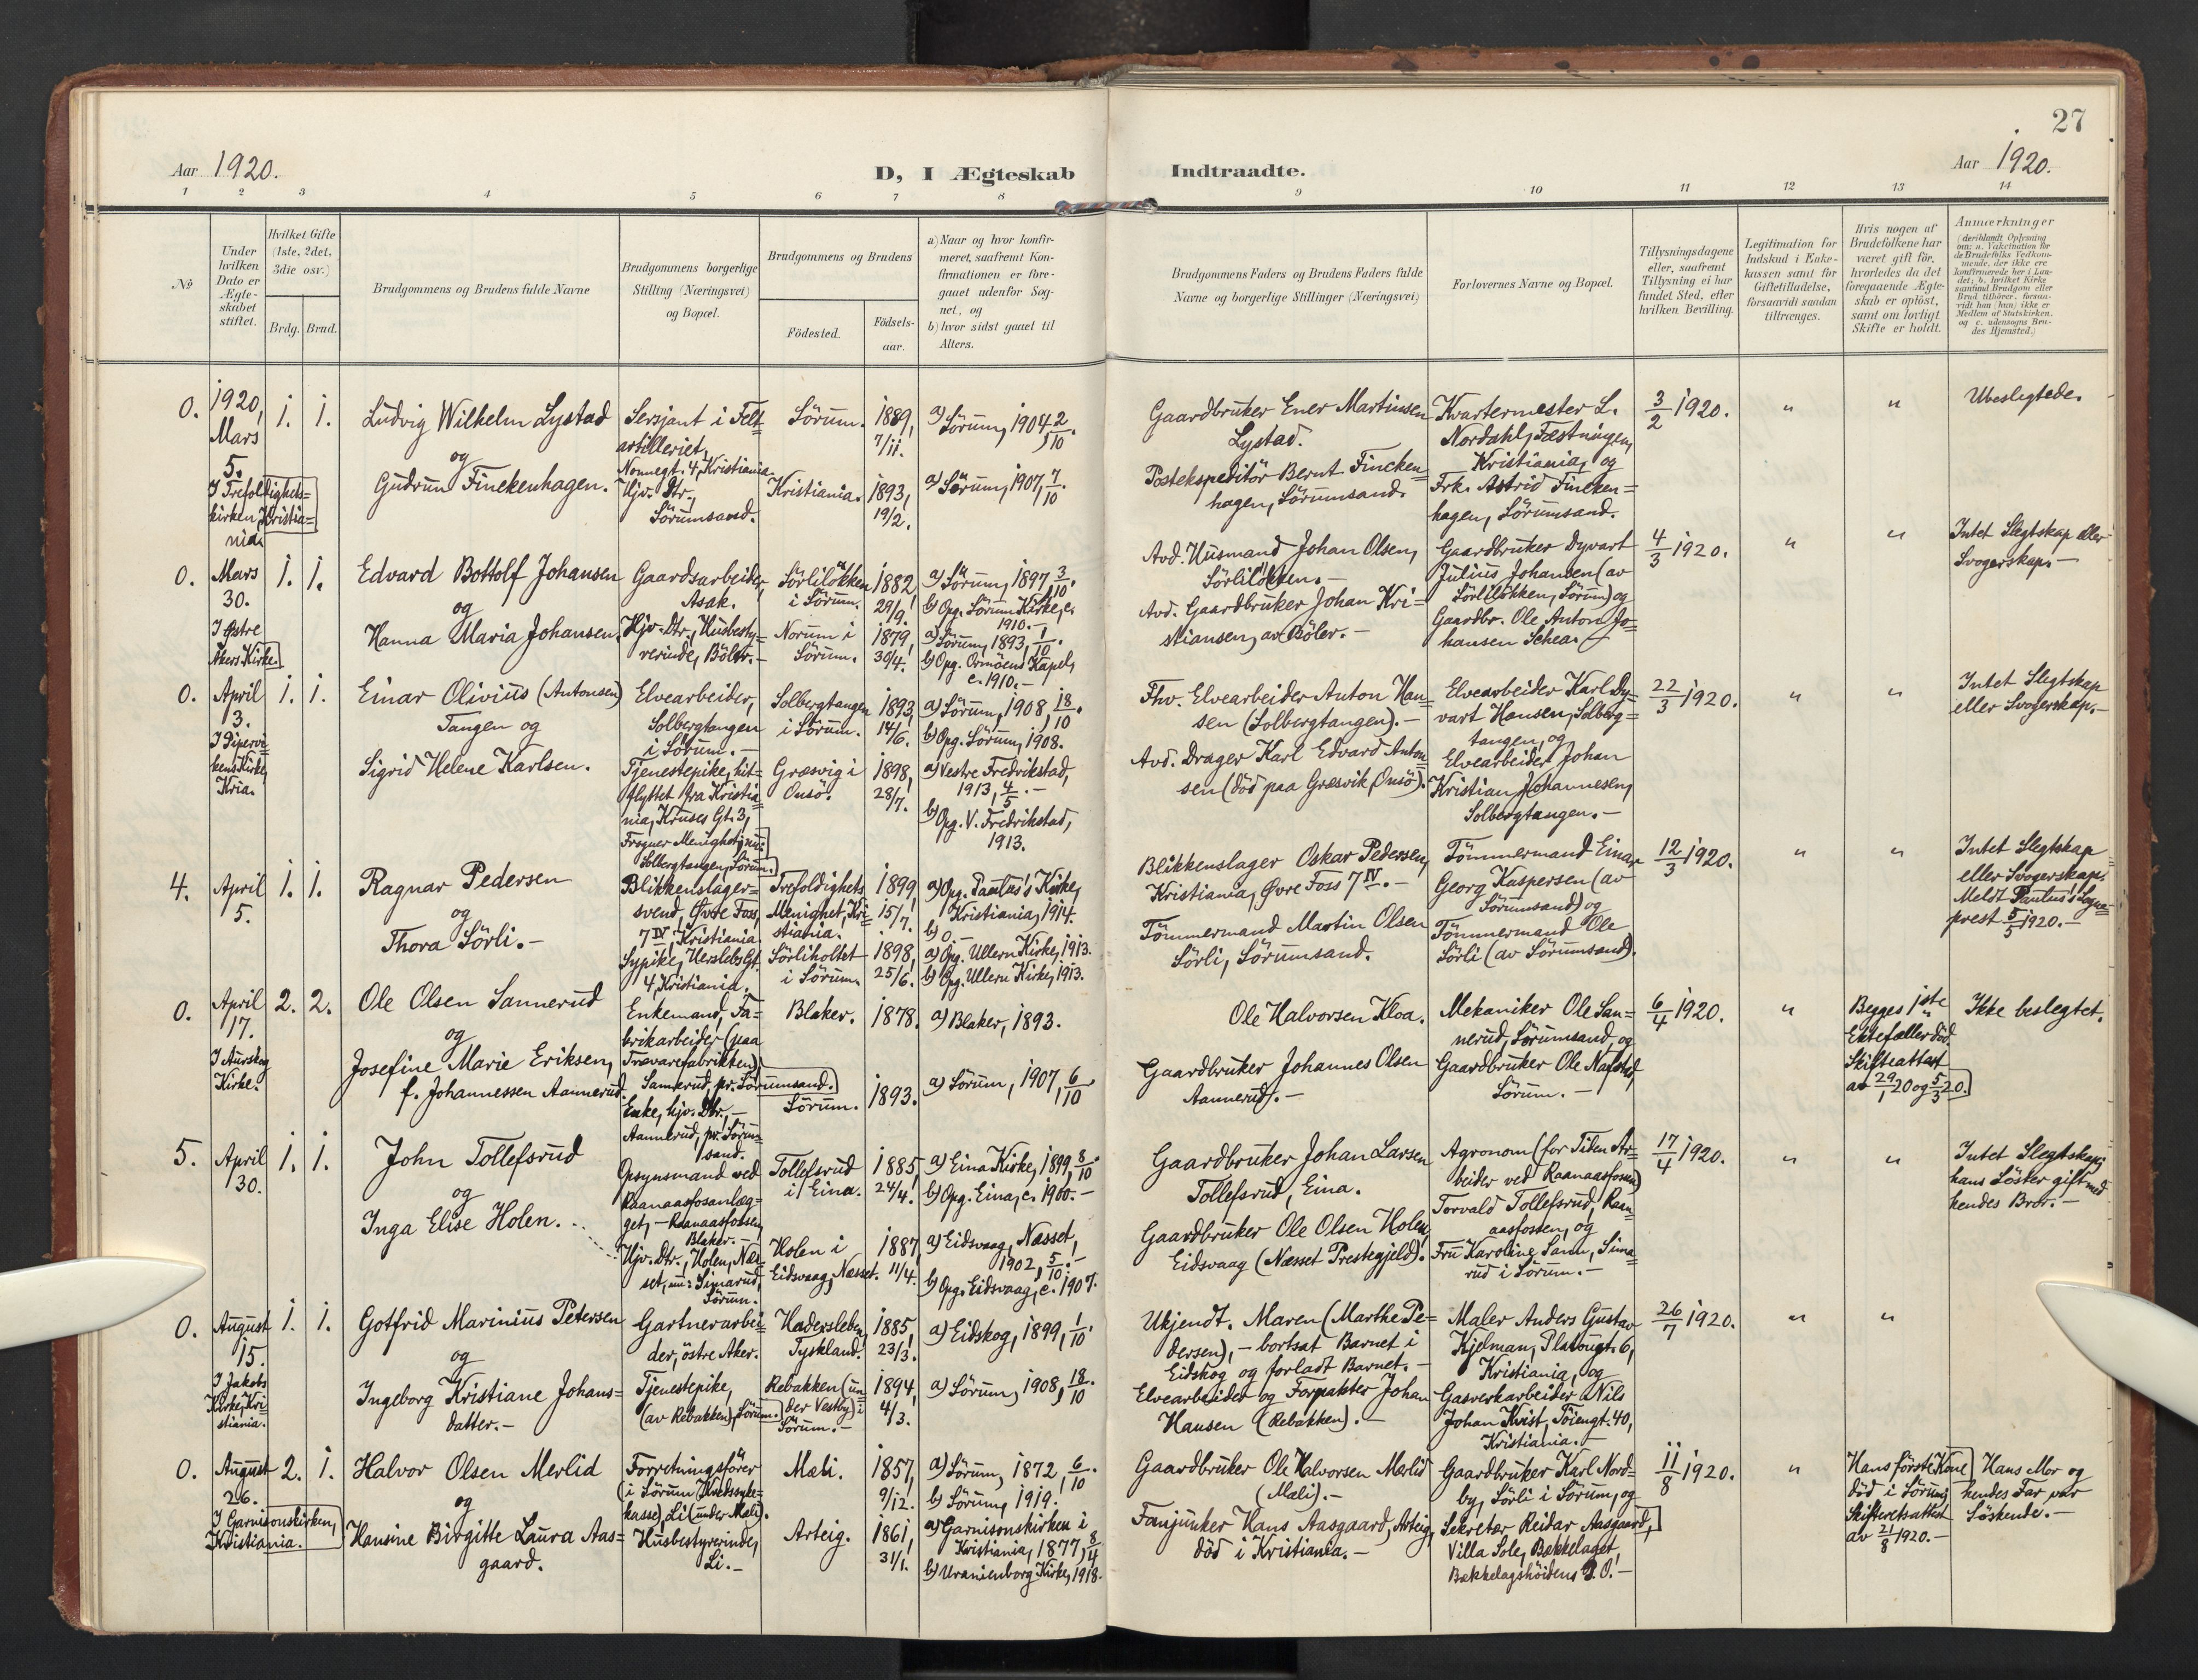 27
Aar 1920.
D, I Ægteskab
Indtraadte.
Aar 1920.
1 2 3 4 5 6 7 8 9 10 11 12 13 14
№
Under
hvilken
Dato er
Ægte-
skabet
stiftet.
Hvilket Gifte
(1ste, 2det,
3die osv.)
Brdg. Brud.
Brudgommens og Brudens fulde Navne
Brudgommens borgerlige
Stilling (Næringsvei)
og Bopæl.
Brudgommens og Brudens
Födested.
Födsels-
aar.
a) Naar og hvor konfir-
meret, saafremt Kon-
firmationen er fore-
gaaet udenfor Sog-
net, og
b) hvor sidst gaaet til
Alters.
Brudgommens Faders og Brudens Faders fulde
Navne og borgerlige Stillinger (Næringsvei)
Forlovernes Navne og Bopæl.
Tillysningsdagene
eller, saafremt
Tillysning ei har
fundet Sted, efter
hvilken Bevilling.
Legitimation for
Indskud i Enke-
kassen samt for
Giftetilladelse,
forsaavidt saadan
tiltrænges.
Hvis nogen af
Brudefolkene har
været gift för,
hvorledes da det
foregaaende Ægte-
skab er oplöst,
samt om lovligt
Skifte er holdt.
Anmærkninger
(deriblandt Oplysning
om: a. Vakcination for
de Brudefolks Vedkom-
mende, der ikke ere
konfirmerede her i Lan-
det; b. hvilket Kirke-
samfund Brudgom eller
Brud tilhörer, forsaa-
vidt han (hun) ikke er
Medlem af Statskirken,
og c. udensogns Bru-
des Hjemsted.)
0.
1920,
Mars
5.
I Trefoldighets=
kirken, Kristia=
nia.
1. 1.
Ludvig Wilhelm Lystad
og
Gudrun Finckenhagen.
Sersjant i Felt=
artilleriet,
Nonnegt. 4, Kristiania.
Hjv. Dtr.,
Sörumsand.
Sörum.
Kristiania.
1889,
7/11.
1893,
19/2.
a) Sörum, 1904, 2/10.
a) Sörum, 1907, 7/10.
Gaardbruker Ener Martinsen
Lystad.
Postekspeditör Bernt Fincken=
hagen, Sörumsand.
Kvartermester L.
Nordahl, Fæstningen,
Kristiania, og
Frk. Astrid Fincken=
hagen, Sörumsand.
3/2 1920.
"
"
Ubeslegtede.
0.
Mars
30.
I Østre
Akers Kirke.
1. 1.
Edvard Bottolf Johansen
og
Hanna Maria Johansen
Gaardsarbeider,
Asak.
Hjv. Dtr., Husbesty=
rerinde, Böler.-
Sörlilökken
i Sörum.
Norum i
Sörum.
1882,
29/9.
1879,
30/4.
a) Sörum, 1897, 3/10.
b) Opg. Sörum Kirke, c.
1910.-
a) Sörum, 1893, 1/10.
b) Opg. Ormöens Kapel,
c. 1910.-
Avd. Husmand Johan Olsen,
Sörlilökken.-
Avd. Gaardbruker Johan Kri=
stiansen, av Böler.-
Gaardbruker Dyvart
Julius Johansen (av
Sörlilökken, Sörum) og
Gaardbr. Ole Anton Jo=
hansen Schea.
4/3 1920.
"
"
Intet Slegtskap eller
Svogerskap.-
0.
April
3.
I Pipervi=
kens Kirke,
Kria.
1. 1.
Einar Olivius (Antonsen)
Tangen og
Sigrid Helene Karlsen.
Elvearbeider,
Solbergtangen
i Sörum.-
Tjenestepike, hit=
flyttet fra Kristia=
nia, Kruses Gt. 3,
Frogner Menighet, nu:
Solbergtangen, Sörum.
Solbergtangen
i Sörum.
Græsvig i
Onsö.
1893,
14/6.
1898,
28/7.
a) Sörum, 1908, 18/10.
b) Opg. Sörum, 1908.
a) Vestre Fredrikstad,
1913, 4/5.-
b) Opg. V. Fredrikstad,
1913.
Fhv. Elvearbeider Anton Han=
sen (Solbergtangen).-
Avd. Drager Karl Edvard Anton=
sen (död paa Græsvik, Onsö).
Elvearbeider Karl Dy=
vart Hansen, Solberg=
tangen, og
Elvearbeider Johan
Kristian Johannesen,
Solbergtangen.-
22/3 1920.
"
"
Intet Slegtskap
eller Svogerskap.-
4.
April
5.
1. 1.
Ragnar Pedersen
og
Thora Sörli.-
Blikkenslager=
svend, Øvre Foss
7 IV, Kristiania.
Sypike, Herslebs Gt.
4, Kristiania.
Trefoldighets
Menighet, Kri=
stiania.
Sörliholtet
i Sörum.
1899,
15/7.
1898,
25/6.
a) Opg. Paulus's Kirke,
Kristiania, 1914.
b) 0.-
a) Opg. Ullern Kirke, 1913.
b) Opg. Ullern Kirke, 1913.
Blikkenslager Oskar Pedersen,
Kristiania, Øvre Foss 7 IV.-
Tömmermand Martin Olsen
Sörli, Sörumsand.
Tömmermand Einar
Georg Kaspersen (av
Sörumsand) og
Tömmermand Ole
Sörli (av Sörumsand).
12/3 1920.
"
"
Intet Slegtskap
eller Svogerskap.
Meldt Paulus's Sogne=
prest 5/5 1920.-
0.
April
17.
I Aurskog
Kirke.
2. 2.
Ole Olsen Sannerud
og
Josefine Marie Eriksen,
f. Johannessen Aannerud.
Enkemand, Fa=
brikarbeider (paa
Trævarefabrikken),
Sannerud, pr. Sörumsand.
Enke, hjv. Dtr.,-
Aannerud, pr. Sörum=
sand.
Blaker.
Sörum.
1878.
1893.
a) Blaker, 1893.
a) Sörum, 1907, 6/10
Ole Halvorsen Kloa.
Gaardbruker Johannes Olsen
Aannerud.-
Mekaniker Ole San=
nerud, Sörumsand, og
Gaardbruker Ole Nafstad,
Sörum.-
6/4 1920.
"
Begges 1ste
Ektefæller död.
Skifteattest
av 29/1 20 og 5/3 20.
Ikke beslegtet.
5.
April
30.
1. 1.
John Tollefsrud
og
Inga Elise Holen.
Opsynsmand ved
Raanaasfosanlæg=
get,- Raanaasfossen,
Blaker.-
Hjv. Dtr., Holen, Næs=
set, nu: Simarud,
Sörum.
Tollefsrud
i Eina.
Holen i
Eidsvaag, Næsset.
1885,
24/4.
1887,
11/4.
a) Eina Kirke, 1899, 8/10.
b) Opg. Eina, c. 1900.-
a) Eidsvaag, Næsset,
1902, 5/10.-
b) Opg. Eidsvaag, c. 1907.
Gaardbruker Johan Larsen
Tollefsrud, Eina.
Gaardbruker Ole Olsen Holen,
Eidsvaag (Næsset Prestegjeld).
Agronom (for Tiden Ar=
beider ved Raanaasfossen)
Torvald Tollefsrud, Raan=
aasfossen, og
Fru Karoline Sann, Sima=
rud i Sörum.-
17/4 1920.
"
"
Intet Slegtskap;
hans Söster gift med
hendes Bror.-
0.
August
15.
I Jakobs
Kirke, Kri=
stiania.
1. 1.
Gotfrid Marinius Petersen
og
Ingeborg Kristiane Johans=
datter.-
Gartnerarbei=
der, östre Aker.
Tjenestepike,
(av Rebakken), Sörum.
Hadersleben,
Tyskland.
Rebakken (un=
der Vestby) i
Sörum.-
1885,
23/3.
1894,
4/3.
a) Eidskog, 1899, 1/10.
a) Sörum, 1908, 18/10.
Ukjendt. Maren (Marthe Pe=
dersen),- bortsat Barnet i
Eidskog og forladt Barnet.-
Elvearbeider og Forpakter Johan
Hansen (Rebakken).-
Maler Anders Gustav
Kjelman, Platougt. 6,
Kristiania, og
Gasverkarbeider Nils
Johan Kvist, Töiengt. 40,
Kristiania.-
26/7 1920.
"
"
0.
August
26.
I Garnisonskirken,
Kristiania.
2. 1.
Halvor Olsen Merlid
og
Hansine Birgitte Laura Aas=
gaard.
Forretningsförer
(i Sörum Kredssyke=
kasse), Li (under Mæli).
Husbestyrerinde,
Li.-
Mæli.
Arteig.
1857,
9/12.
1861,
31/1.
a) Sörum, 1872, 6/10.
b) Sörum, 1919.
a) Garnisonskirken i
Kristiania, 1877, 8/4
b) Uranienborg Kirke, 1918.
Gaardbruker Ole Halvorsen Merlid
(Mæli).-
Fanjunker Hans Aasgaard, Arteig,
död i Kristiania.-
Gaardbruker Karl Nord=
by, Sörli i Sörum, og
Sekretær Reidar Aasgaard,
Villa Sole, Bækkelaget,
Bækkelagshöidens P.O.-
11/8 1920.
"
Hans förste Kone
död i Sörum;
Skifteretsattest
av 21/8 1920.-
Hans Mor og
hendes Far var
Söskende.-